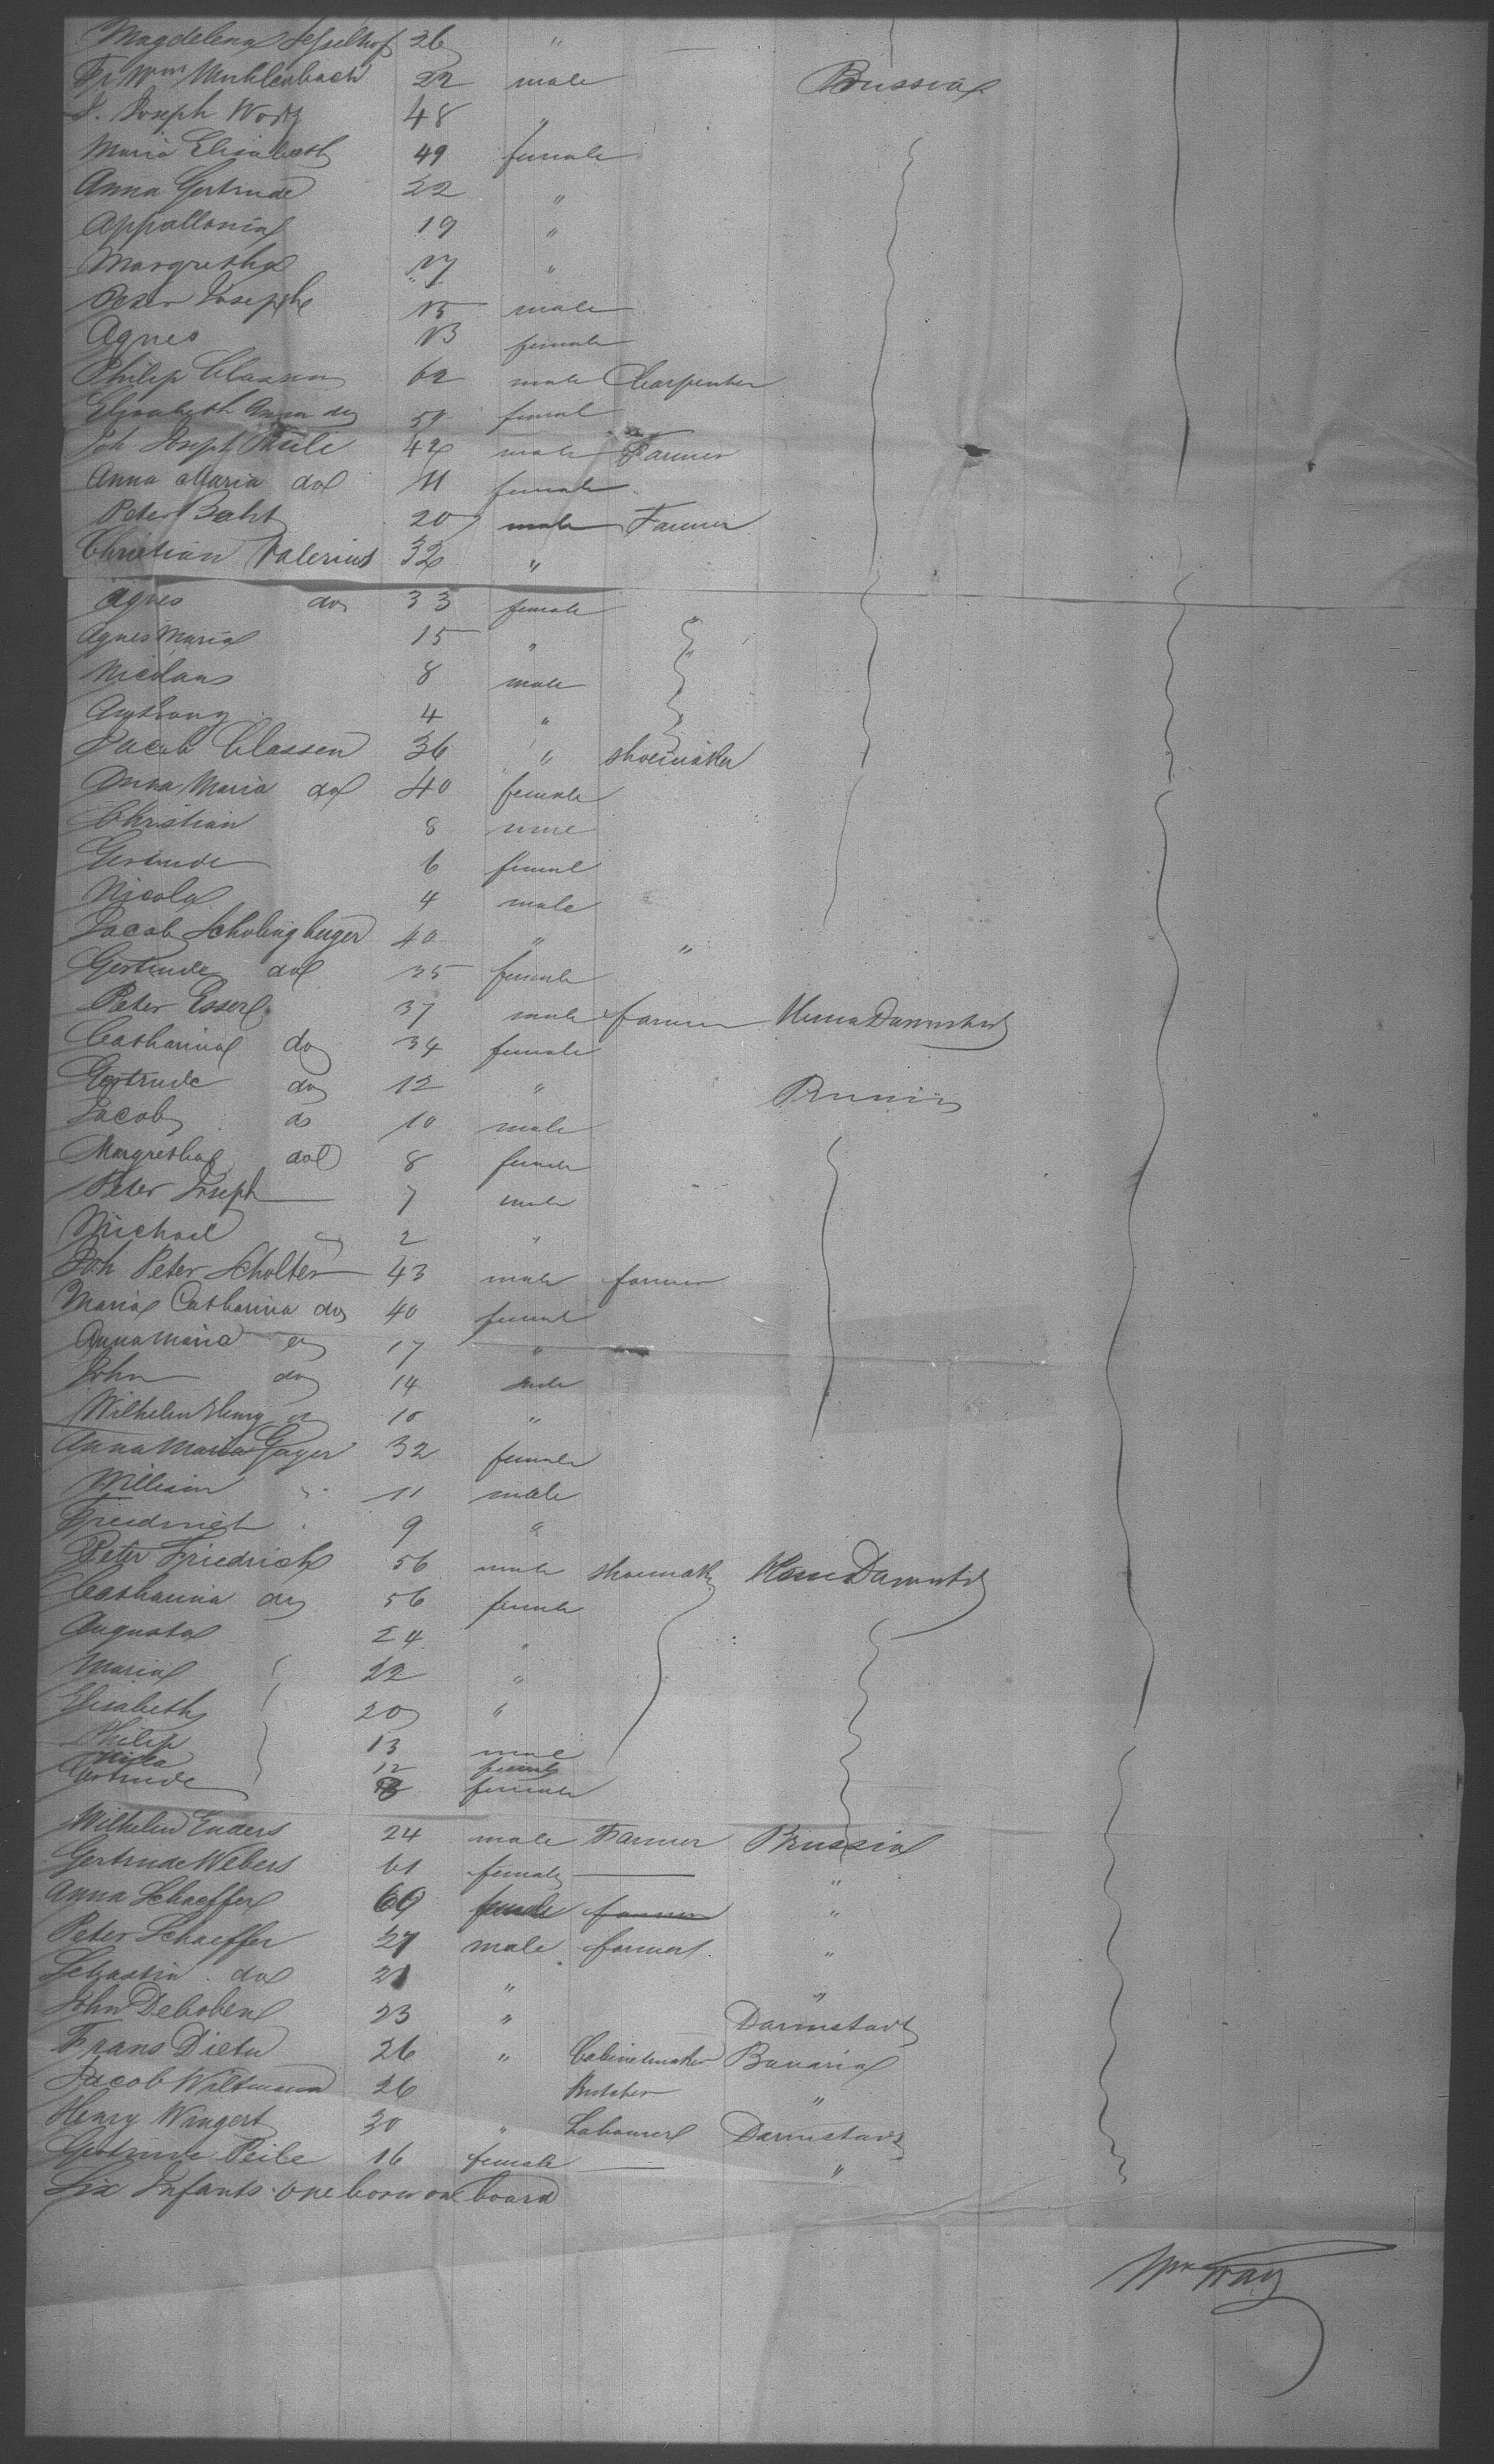 Magdelena Hesselhof 26 "
Fr Wm Muhlenbach 22 male Prussia
J. Joseph 48 "
Maria Elisabeth 49 female
Anna Gertrude 22 "
Appallonia 19 "
Margretha 17 "
Peter Joseph 15 male
Agnes 13 female
Philip Classen 62 male Carpenter
Elisabeth Anna do 59 female
Joh Joseph Thiele 42 male Farmer
Anna Maria do 41 female
Peter Baht 20 male Farmer
Christian Valerius 32 "
Agnes do 33 female
Agnes Maria 15 " "
Nicolaus 8 male "
Anthony 4 " "
Jacob Classen 36 " shoemaker
Anna Maria do 40 female
Christian 8 male
Gertrude 6 female
Nicola 4 male
Jacob Scholingberger 40 " "
Gertrude do 35 female
Peter Esser 37 male farmer Hesse Darmstadt
Catharina do 34 female
Gertrude do 12 " Prussia
Jacob do 10 male
Margretha do 8 female
Peter Joseph 7 male
Michael 2 "
Joh Peter Scholter 43 male farmer
Maria Catharina do 40 female
Anna Maria do 17 "
John do 14 male
Wilhelm Henry do 10 "
Anna Maria Gayer 32 female
William " 11 male
Friedrich 9 "
Peter Friedrich 56 male shoemaker Hesse Darmstadt
Catharina do 56 female
Augusta 24 "
Maria 22 "
Elisabeth 20 "
Philip 13 male
12 female
Gertrude female
Wilhelm Enders 24 male Farmer Prussia
Gertrude Webers 61 female "
Anna Schaeffer 60 female farmer "
Peter Schaeffer 27 male farmer "
Sebastin do 21 " "
John Deboben 23 " Darmstadt
Frans Dieter 26 " Cabinetmaker Bavaria
Jacob Wiltmann 26 Butcher "
Henry Wingert 30 " Labourer Darmstadt
Gertrude Peile 16 female "
Six Infants one born on board
Wm Fray